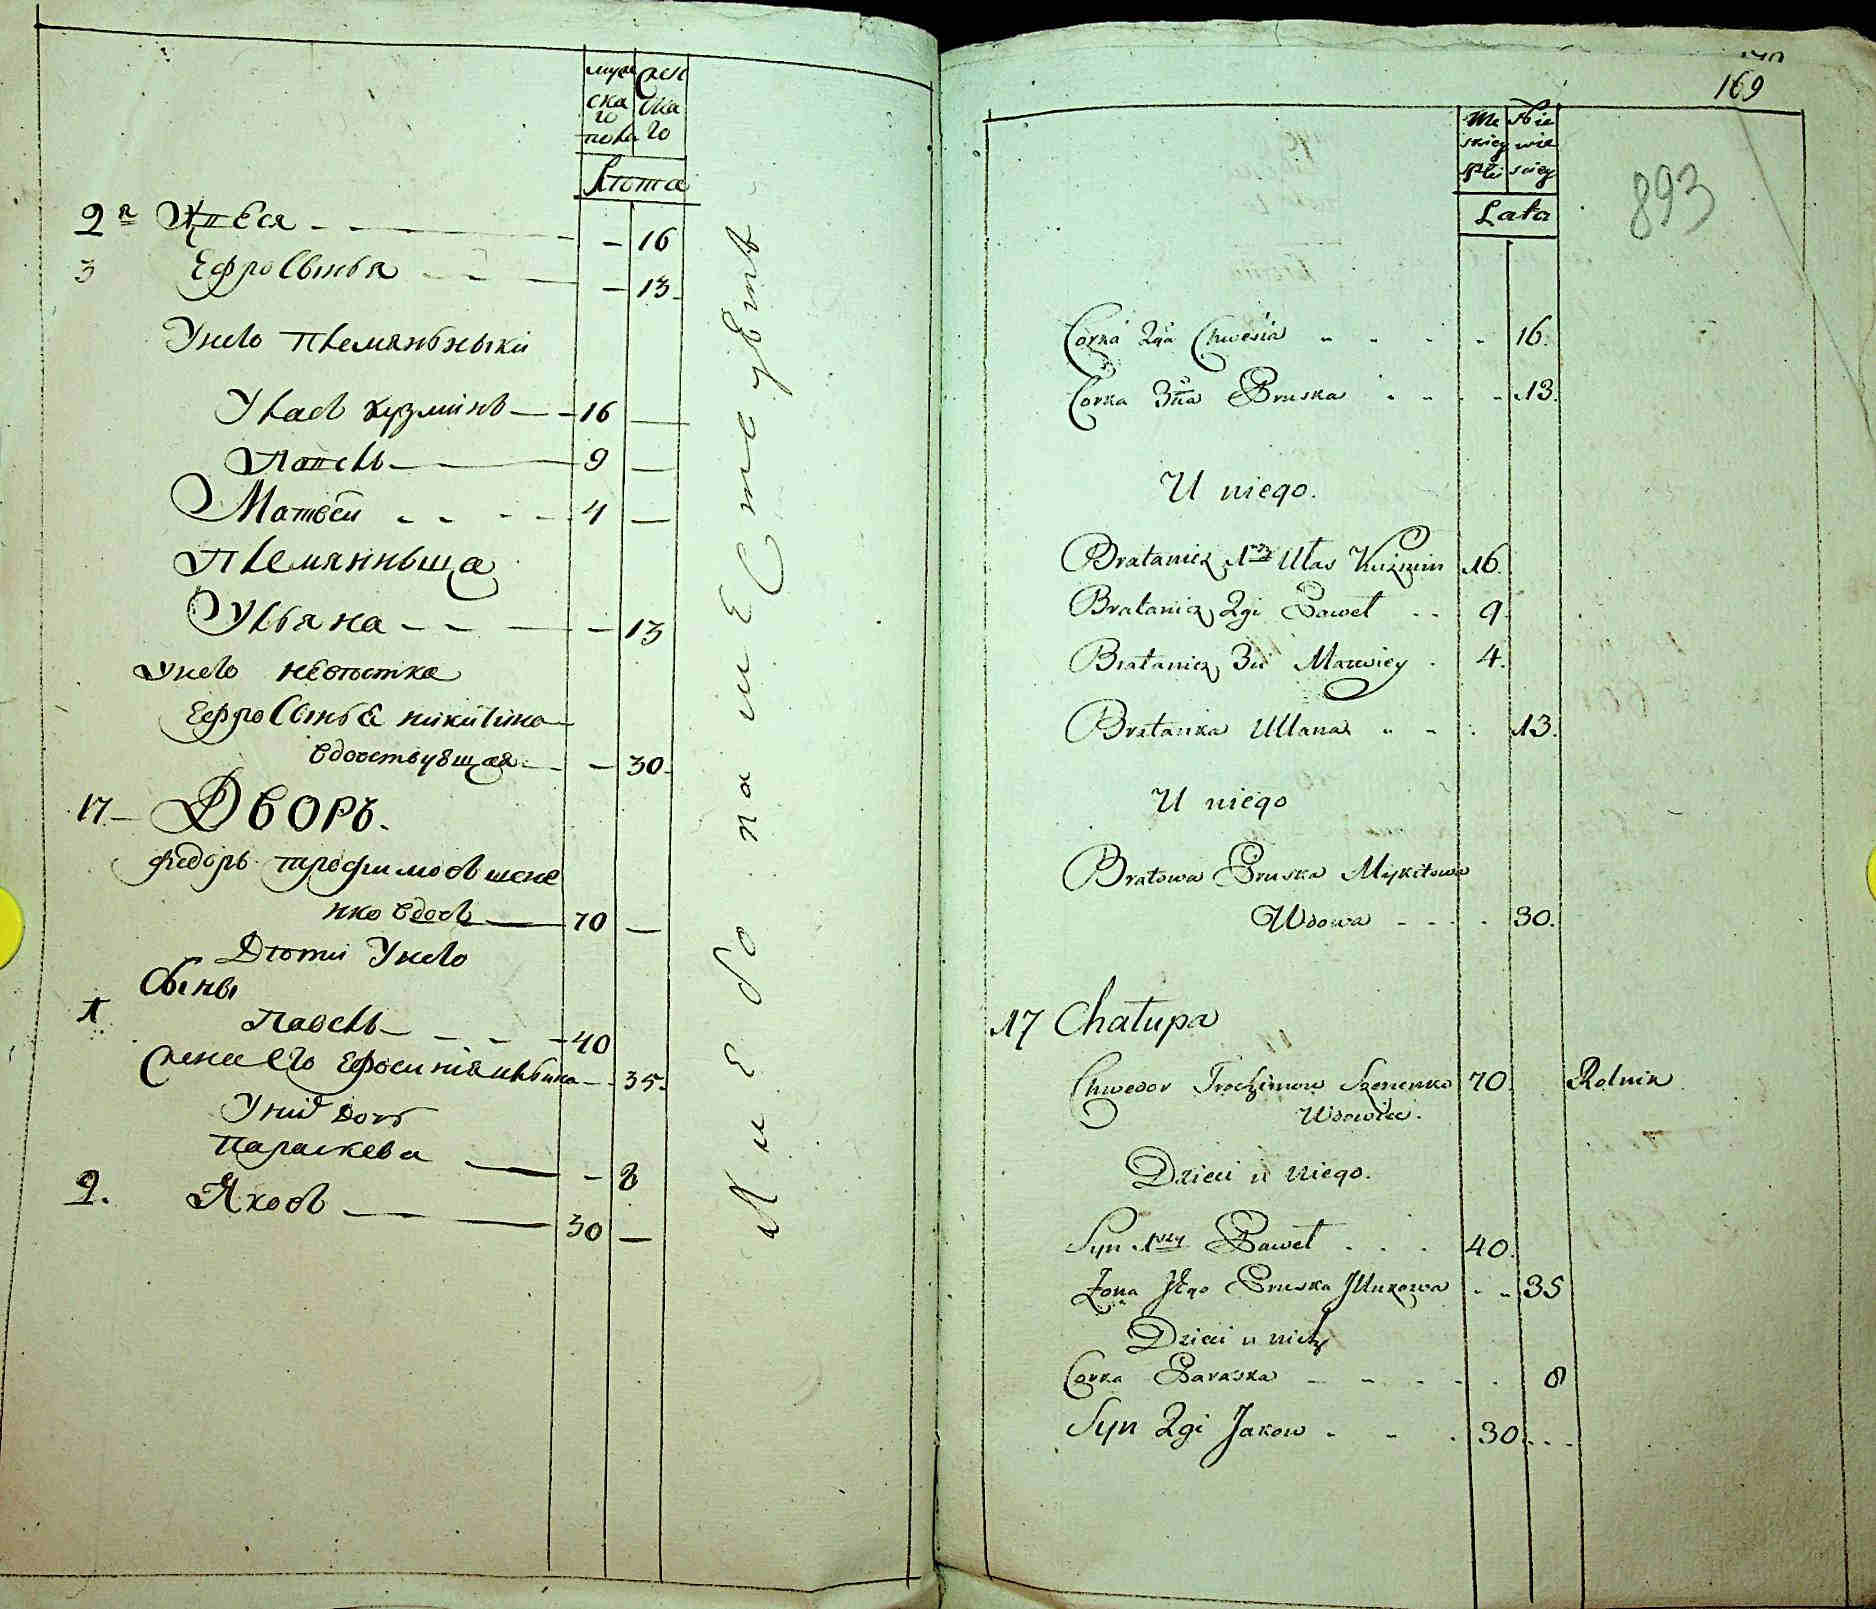 муж жен
ска ска
го го
пола
Лѣта
2я Хвеся - 16
3 Ефросинья - 13
У него племянники
Улас Кузминъ 16 -
Павелъ 9 -
Матвей 4 -
племянница
Ульяна - 13
У него невѣстка
Ефросинья никитина
вдовствующая - 30
17 Дворъ.
Федоръ трофимовъ шене
нко вдовъ 70 -
Дѣти У него
Сыны
1 Павелъ 40
Жена его Ефросиния 35
У них дочь
Параскева - 8
2. Яковъ 30 -
169
893
Mę Nie
skiey wie
Płci sciey
Lata
Corka 2ga Chwesia 16.
Corka 3cia Pruska 13.
U niego.
Bratanicz 1szy Ułas Kuźmin 16.
Bratanicz 2gi Paweł 9.
Bratanicz 3ci Matwiey 4.
Bratanka Ullana 13.
U niego
Bratowa Pruska Mykitowa
Wdowa 30.
17 Chałupa
Chwedor Trochimow Szenenko 70. Rolnik
Wdowiec.
Dzieci u niego.
Syn 1szy Paweł 40.
Żona Jego Pruska 35
Dzieci u nich
Corka Paraska 8
Syn 2gi Jakow 30.